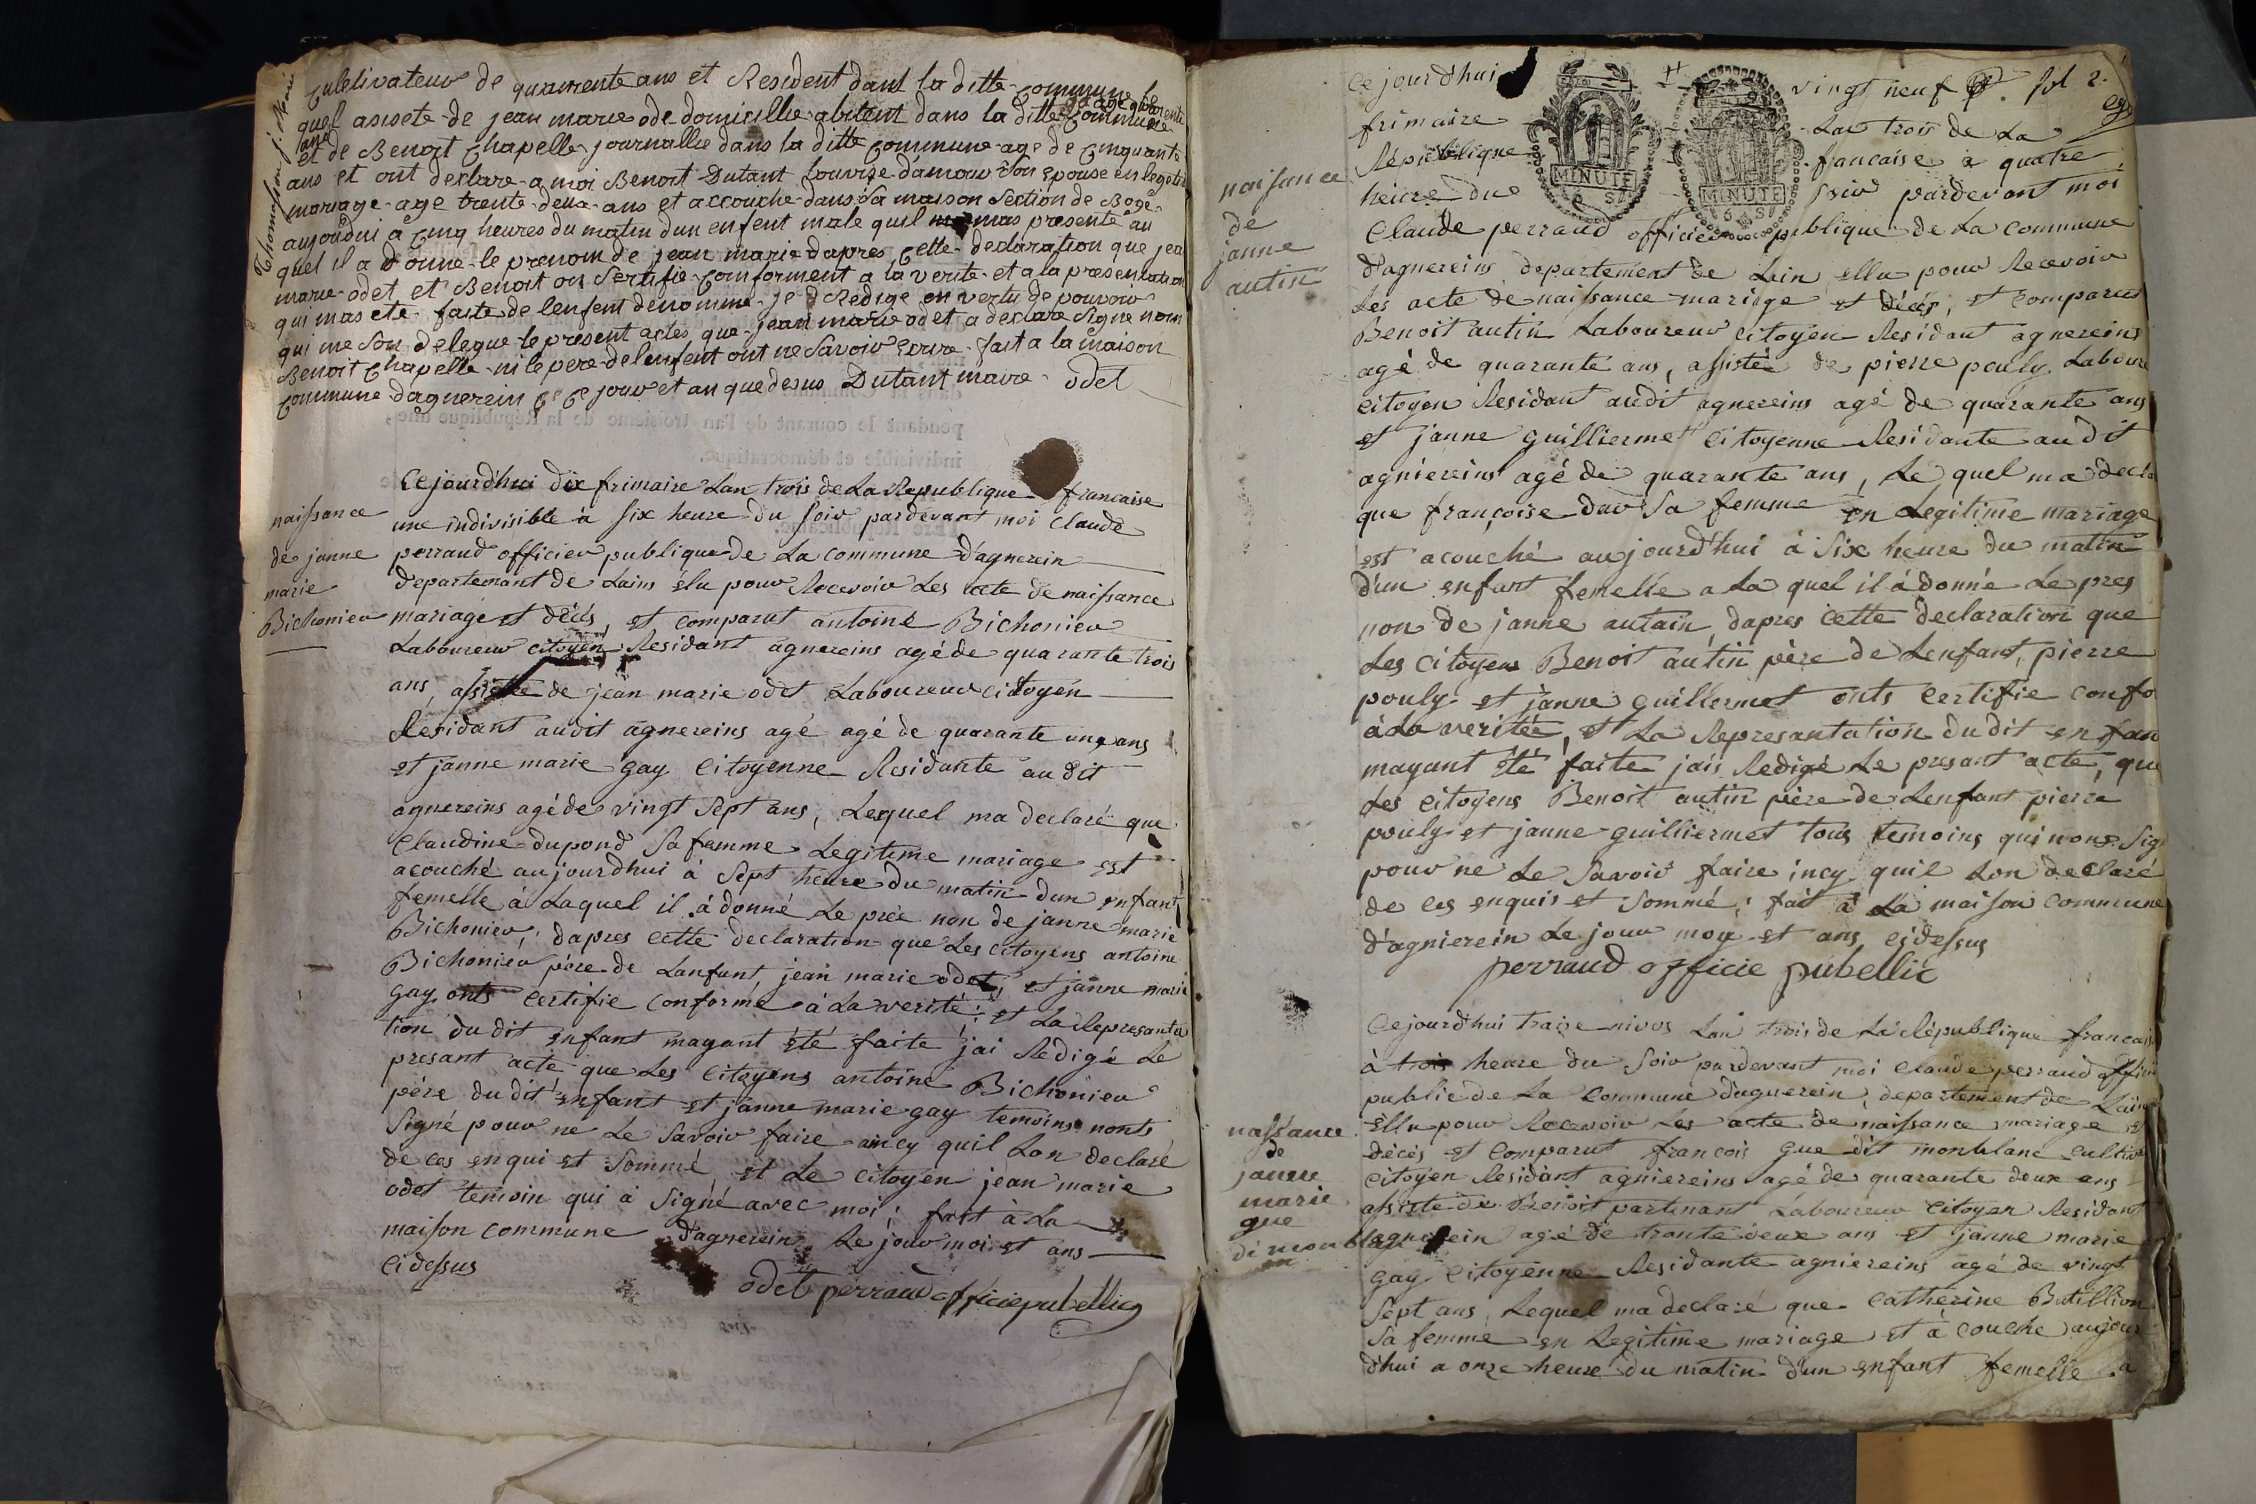 Thomasson j. Marie
cultivateur de quarente ans et Resident dans la ditte commune le
quel assete de jean marie odet domicillie abitent dans la ditte commune age quarente
ans
et de Benoit Chapelle journallie dans la ditte commune age de cinquante
ans et ont declare a moi Benoit Dutant Louvise damour son epouse en legetti
mariage age trente deux ans et accouche dans sa maison Section de Boge
aujourdui a cinq heures du matin dun enfent male quil mas presente au
quel il a donne le prenom de jean marie dapres cette declaration que jea
marie odet et Benoit on Sertifie conforment a la verite et a la presentation
qui mas ete faite de lenfent denomme je Redige en vertu de pouvoir
qui me Son delegue le present actes que jean marie odet a declare Signe nom
Benoit Chapelle ni le pere de lenfent ont ne Savoir Ecrire fait a la maison
commune dagnerein ce jour et an que desus Dutant maire odet
pendant le courant de l'an troisième de la République une,
indivisible et démocratique.
naissance
de janne
marie
Bichonieu
Cejourd'hui dix frimaire Lan trois de La Republique francaise
une indivisible à six heure du soir pardevant moi Claude
perraud officier publique de La commune d'agnerein
departemant de Lains élu pour Recevoir Les acte de naissance
mariage et décés, et comparut antoine Bichonieu
Laboureur citoyen Residant agnereins agé de quarante trois
ans, assistée de jean marie odet Laboureur citoyen
Residant audit agnereins agé agé de quarante une ans
et janne marie gay Citoyenne Residante au dit
agnereins agé de vingt Sept ans, Lequel ma declaré que
Claudine dupond Sa femme Legitime mariage est
acouché aujourdhui à Sept heure du matin dun enfant
femelle à Laquel il à donné Le prée non de janne marie
Bichonieu; dapres cette declaration que Les Citoyens antoine
Bichonieu père de Lanfant, jean marie odet, et janne marie
gay onts certifie conforme à La verité; et La Represanta
tion du dit enfant mayant été faite jai Redigé Le
presant acte que Les Citoyens antoine Bichonieu
père du dit enfant et janne marie gay temoins nonts
Signé pour ne Le Savoir faire aincy quil Lon declaré
de ces enqui et Sommé, et Le Citoyen jean marie
odet temoin qui à Signé avec moi; fait à La
maison commune d'agnerein Le jour moi et ans
cidessus
odet perraud officie pubellicq
naissance
de
janne
autin
Ce jourd'hui vingt neuf fol 2.
frimaire Lan trois de La
République francaise à quatre
heure du soir pardevant moi
MINUTE
MINUTE
Claude perraud officier publique de La commune
d'agnereins departement de Lain ellu pour Recevoir
Les acte de naissance mariage et décés, et comparu
Benoit autin Laboureur citoyen Residant agnereins
agé de quarante ans, assistée de pierre pouly Laboure
citoyen Residant audit agnereins agé de quarante ans
et janne guilliermet Citoyenne Residante au dit
agniereins agé de quarante ans, Le quel ma decla
que françoise dav Sa femme en Legitime mariage
est acouché aujourd'hui à Six heure du matin
d'un enfant femelle a La quel il à donné Le pres
non de janne autain, dapres cette declaration que
Les Citoyens Benoit autin père de Lenfant, pierre
pouly et janne guillermet onts certifie confo
à La veritée, et La Represantation du dit enfan
mayant été faite jais Redigé Le presant acte, que
Les citoyens Benoit autin père de Lenfant pierre
pouly et janne guilliermet tous temoins qui nons Sig
pour ne Le Savoir faire incy quil Lon declaré
de ces enquis et Sommé; fait à La maison commune
d'agnierein Le jour moy et ans cidessus
perraud officie pubellic
naissance
de
janne
marie
gue
di monblan
Cejourd'hui traize nivos Lan trois de La République francais
à trois heure du Soir pardevant moi Claude perraud offici
public de La Commune dagnerein, departement de Lain
ellu pour Recevoir Les acte de naissance mariage et
décès et Comparut francois gue dit monblanc cultiv
citoyen Residant agniereins agé de quarante deux ans
assistée de Benoit partinant Laboureur Citoyen Residant
agnerein agé de trante deux ans et janne marie
gay Citoyenne Residante agniereins agé de vingt
Sept ans, Lequel ma declaré que Catherine Butillion
Sa femme en Legitime mariage et à couche aujour
d'hui a onze heure du matin d'un enfant femelle a